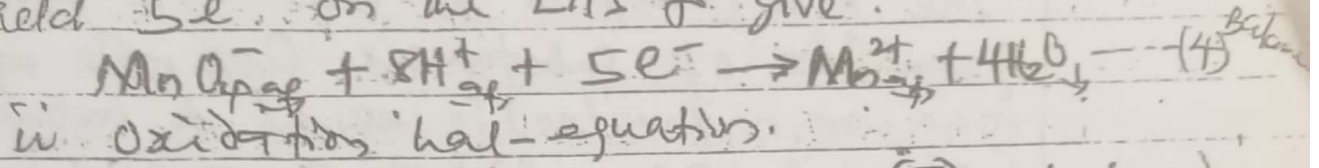 ield 5e. on the LHS & give.
MnO₄⁻(aq) + 8H⁺(aq) + 5e⁻ → Mn²⁺(aq) + 4H₂O(l) --- (4)
ii. oxidation hal-equation.